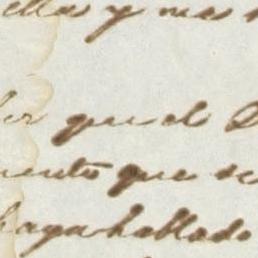 ellas y mas
que el
mento que se
haya hablado